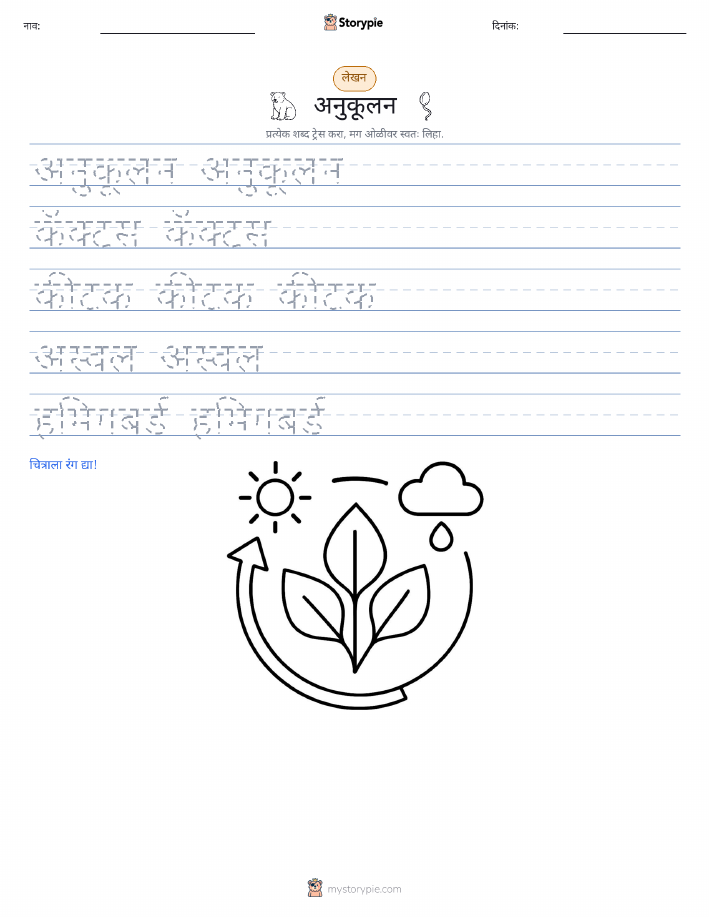 नाव: Storypie दिनांक:
लेखन
अनुकूलन
प्रत्येक शब्द ट्रेस करा, मग ओळीवर स्वतः लिहा.
अनुकूलन अनुकूलन
कॅक्टस कॅक्टस
कीटक कीटक कीटक
अस्वल अस्वल
हमिंगबर्ड हमिंगबर्ड
चित्राला रंग द्या!
mystorypie.com